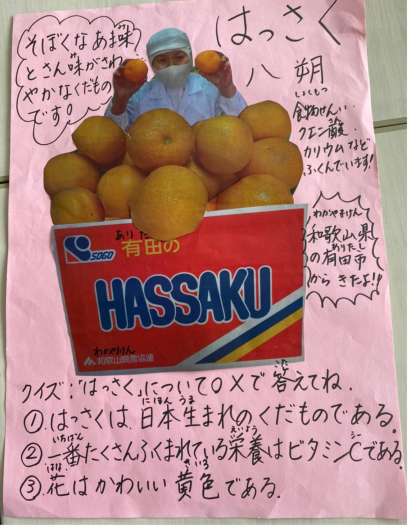 はっさく
八朔
そぼくなあま味
とさん味がさわ
やかなくだもの
です。
しょくもつ
食物せんい、
クエン酸、
カリウムなど
ふくんでいます!
わかやまけん
和歌山県
ありたし
の有田市
から きたよ!!
ありだ
有田の
SOGO
HASSAKU
わかやまけん
クイズ:「はっさく」について○×で答えてね。
こた
にほん う
①.はっさくは、日本生まれのくだものである。
いちばん えいよう シー
②一番たくさんふくまれている栄養はビタミンCである。
はな きいろ
③花はかわいい黄色である。